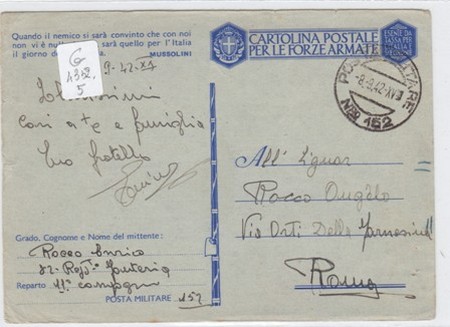 Quando il nemico si sarà convinto che con noi
non vi è nulla sarà quello per l'Italia
il giorno
MUSSOLINI
G
1312
5
9-42-XX
cari a te e famiglia
tuo fratello
Enrico
Grado, Cognome e Nome del mittente:
Rocco Enrico
82° Regg.to fanteria
Reparto 11ª compagn
POSTA MILITARE 152
CARTOLINA POSTALE
PER LE FORZE ARMATE
ESENTE DA
TASSA PER
L'ITALIA
POSTA MILITARE
-8.9.42.XX
N° 152
All' Signor
Rocco Angelo
Via Orti Della Farnesina
Roma